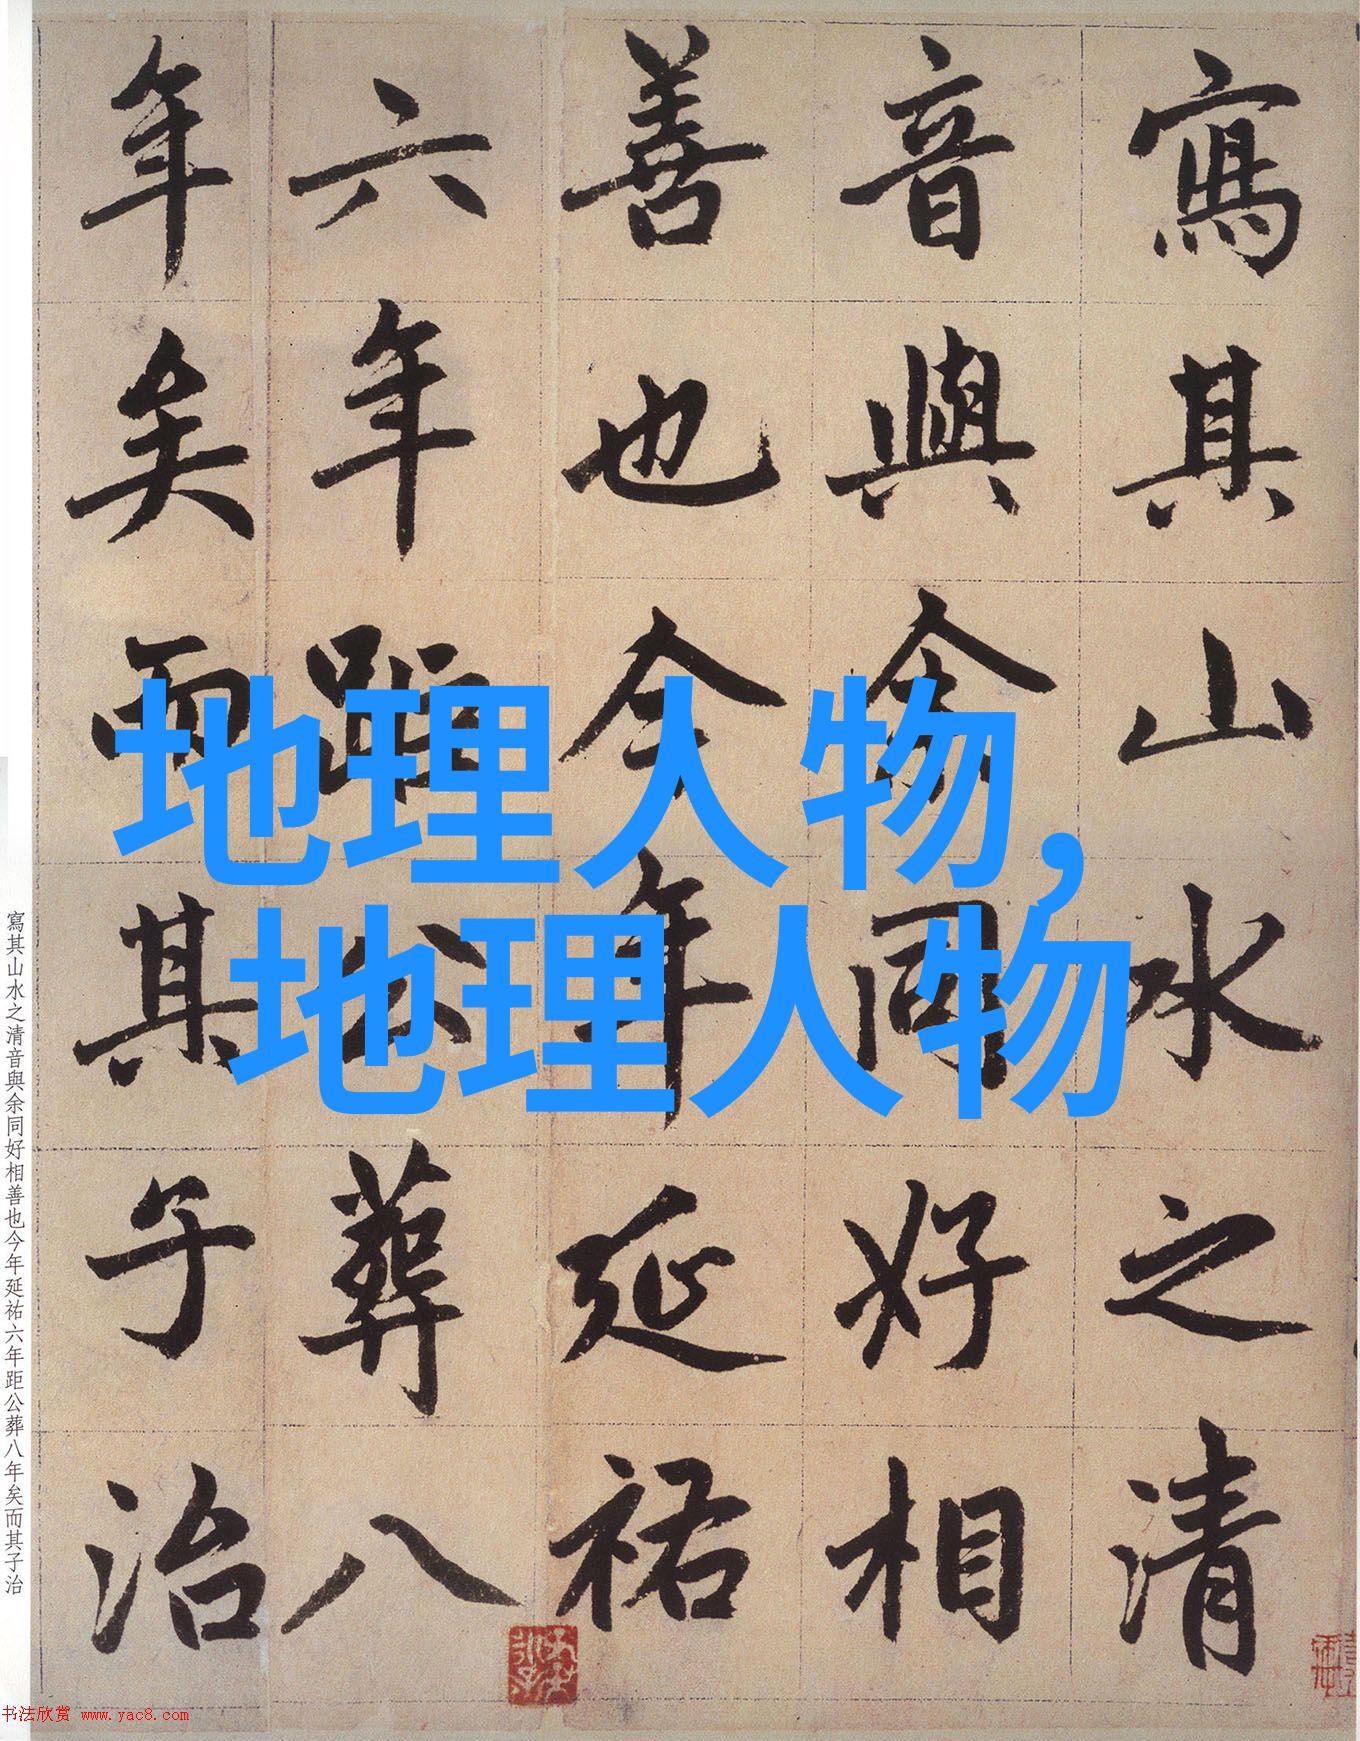 寫其山水之清
音與余同好相
善也今年延祐
六年距公葬八
年矣而其子治
地理人物,
地理人物
寫其山水之清音與余同好相善也今年延祐六年距公葬八年矣而其子治
书法欣赏 www.yac8.com